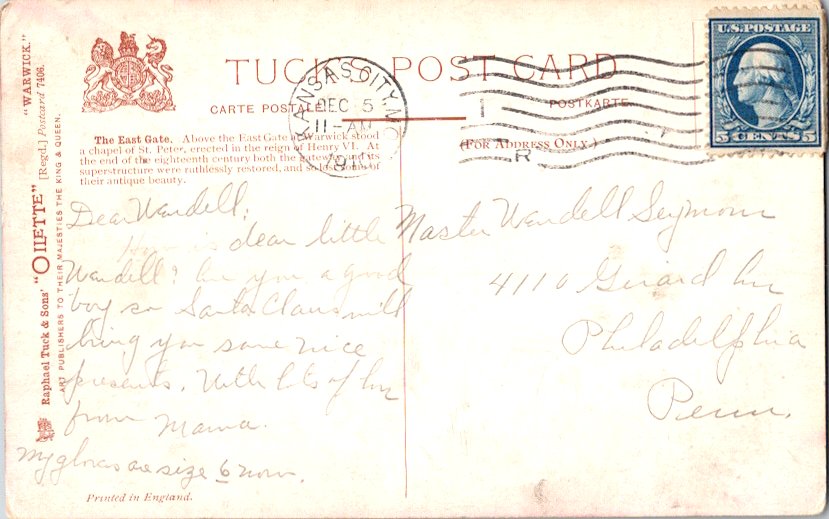 TUCK'S POST CARD
CARTE POSTALE
POSTKARTE
(FOR ADDRESS ONLY.)
KANSAS CITY, MO.
DEC 5
11-AM
1911
1
R
U.S. POSTAGE
5 CENTS 5
"WARWICK."
Raphael Tuck & Sons' "OILETTE" [Regd.] Postcard 7406.
ART PUBLISHERS TO THEIR MAJESTIES THE KING & QUEEN.
The East Gate. Above the East Gate at Warwick stood
a chapel of St. Peter, erected in the reign of Henry VI. At
the end of the eighteenth century both the gateway and its
superstructure were ruthlessly restored, and so lost some of
their antique beauty.
Dear Wendell:
How is dear little
Wendell? Are you a good
boy so Santa Claus will
bring you some nice
presents. With lots of luv
from Mama.
My gloves are size 6 now.
Master Wendell Seymour
4110 Girard Av
Philadelphia
Penn.
Printed in England.